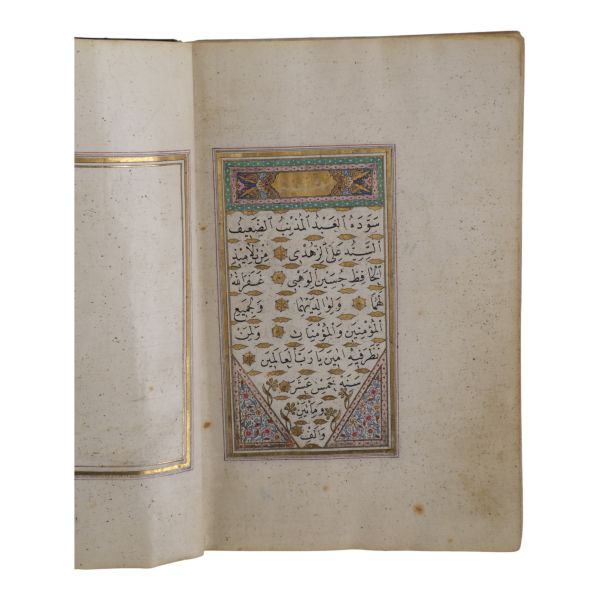 سوده العبد المذنب الضعيف
السيد على الزهدى من تلاميذ
الحافظ حسين الوهبى غفر الله
لهما ولوالديهما ولجميع
المؤمنين والمؤمنات ولمن
نظر فيه امين يا رب العالمين
سنه خمس عشر
ومأتين
والف